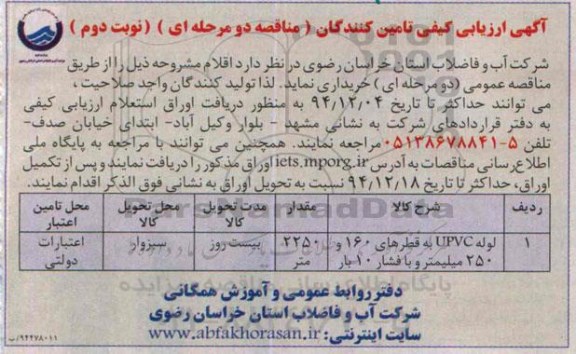 آگهی ارزیابی کیفی تامین کنندگان ( مناقصه دو مرحله ای ) (نوبت دوم )
شرکت آب و فاضلاب استان خراسان رضوی در نظر دارد اقلام مشروحه ذیل را از طریق
مناقصه عمومی (دو مرحله ای) خریداری نماید. لذا تولید کنندگان واجد صلاحیت ،
می توانند حداکثر تا تاریخ ۹۴/۱۲/۰۴ به منظور دریافت اوراق استعلام ارزیابی کیفی
به دفتر قراردادهای شرکت به نشانی مشهد - بلوار وکیل آباد- ابتدای خیابان صدف-
تلفن ۵-۰۵۱۳۸۶۷۸۸۴۱ مراجعه نمایند. همچنین می توانند با مراجعه به پایگاه ملی
اطلاع رسانی مناقصات به آدرس iets.mporg.ir اوراق مذکور را دریافت نمایند و پس از تکمیل
اوراق، حداکثر تا تاریخ ۹۴/۱۲/۱۸ نسبت به تحویل اوراق به نشانی فوق الذکر اقدام نمایند.
ردیف شرح کالا مقدار مدت تحویل کالا محل تحویل کالا محل تامین اعتبار
۱ لوله UPVC به قطرهای ۱۶۰ و ۲۵۰ میلیمتر و با فشار ۱۰ بار ۲۲۵۰ متر بیست روز سبزوار اعتبارات دولتی
دفتر روابط عمومی و آموزش همگانی
شرکت آب و فاضلاب استان خراسان رضوی
سایت اینترنتی: www.abfakhorasan.ir
۹۴۴۷۸۰۱۱/ب